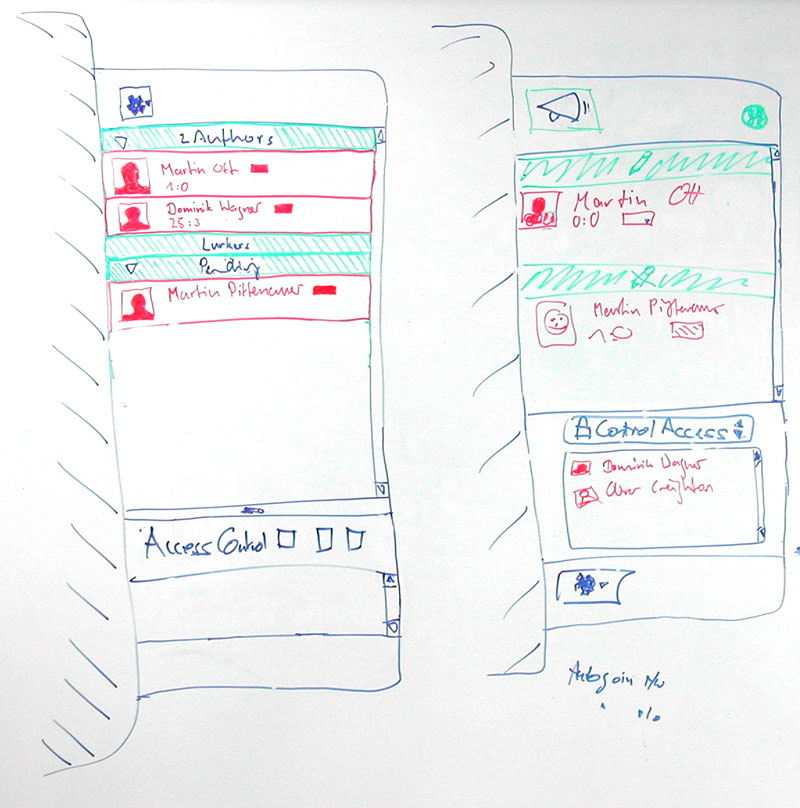 2 Authors
Martin Ott
1:0
Dominik Wagner
25:3
Lurkers
Pending
Martin Pittenauer
Access Control
Martin Ott
0:0
Martin Pittenauer
1:0
Control Access
Dominik Wagner
Oliver Creighton
Autojoin r/w
" r/o